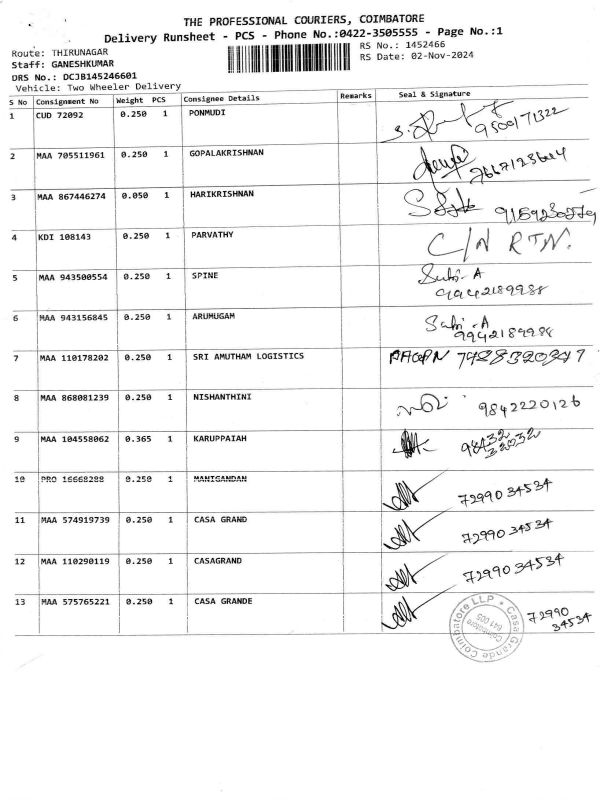 THE PROFESSIONAL COURIERS, COIMBATORE
Delivery Runsheet - PCS - Phone No.:0422-3505555 - Page No.:1
Route: THIRUNAGAR
RS No.: 1452466
Staff: GANESHKUMAR
RS Date: 02-Nov-2024
DRS No.: DCJB145246601
Vehicle: Two Wheeler Delivery
S No Consignment No Weight PCS Consignee Details Remarks Seal & Signature
1 CUD 72092 0.250 1 PONMUDI 9500171322
2 MAA 705511961 0.250 1 GOPALAKRISHNAN
3 MAA 867446274 0.050 1 HARIKRISHNAN
4 KDI 108143 0.250 1 PARVATHY C/N RTN.
5 MAA 943500554 0.250 1 SPINE
9942189988
6 MAA 943156845 0.250 1 ARUMUGAM
9942189988
7 MAA 110178202 0.250 1 SRI AMUTHAM LOGISTICS
8 MAA 868081239 0.250 1 NISHANTHINI 9842220126
9 MAA 104558062 0.365 1 KARUPPAIAH
10 PRO 16668288 0.250 1 MANIGANDAN 72990 34534
11 MAA 574919739 0.250 1 CASA GRAND 72990 34534
12 MAA 110290119 0.250 1 CASAGRAND 72990 34534
13 MAA 575765221 0.250 1 CASA GRANDE 72990
34534
Casa Grande Coimbatore LLP
Coimbatore
641 005